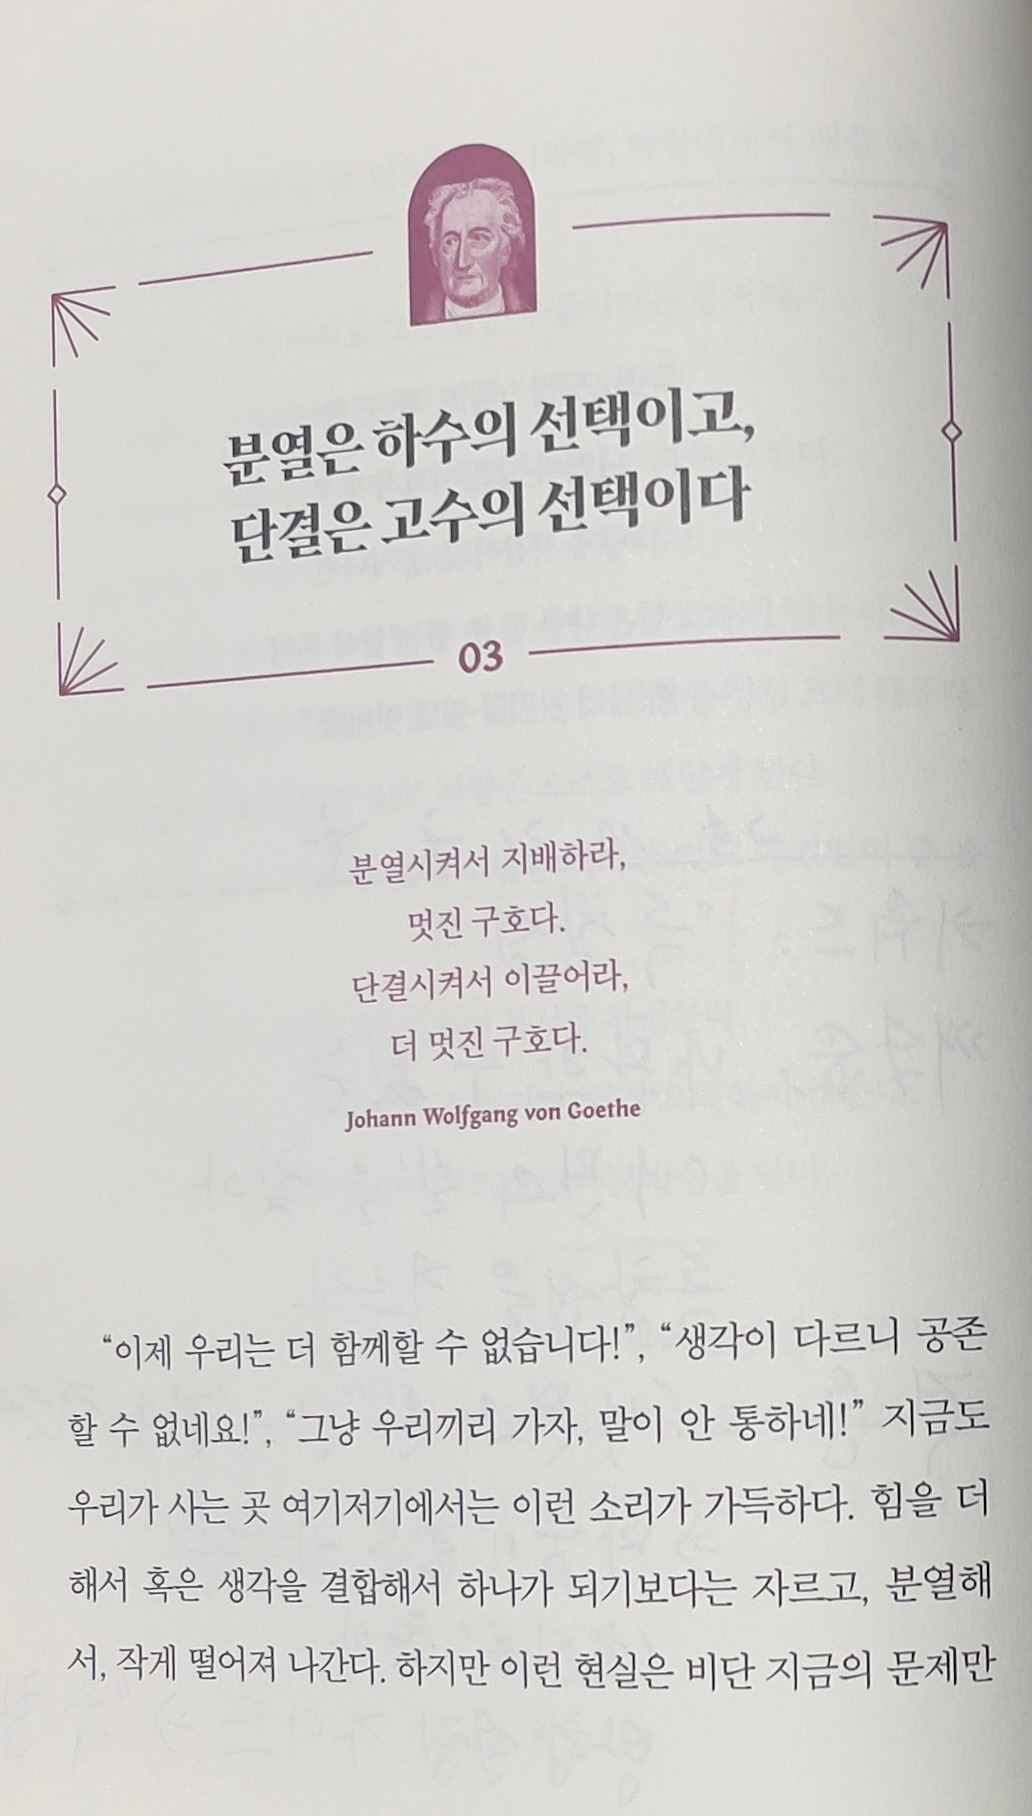 분열은 하수의 선택이고,
단결은 고수의 선택이다
03
분열시켜서 지배하라,
멋진 구호다.
단결시켜서 이끌어라,
더 멋진 구호다.
Johann Wolfgang von Goethe
“이제 우리는 더 함께할 수 없습니다!”, “생각이 다르니 공존
할 수 없네요!”, “그냥 우리끼리 가자, 말이 안 통하네!” 지금도
우리가 사는 곳 여기저기에서는 이런 소리가 가득하다. 힘을 더
해서 혹은 생각을 결합해서 하나가 되기보다는 자르고, 분열해
서, 작게 떨어져 나간다. 하지만 이런 현실은 비단 지금의 문제만